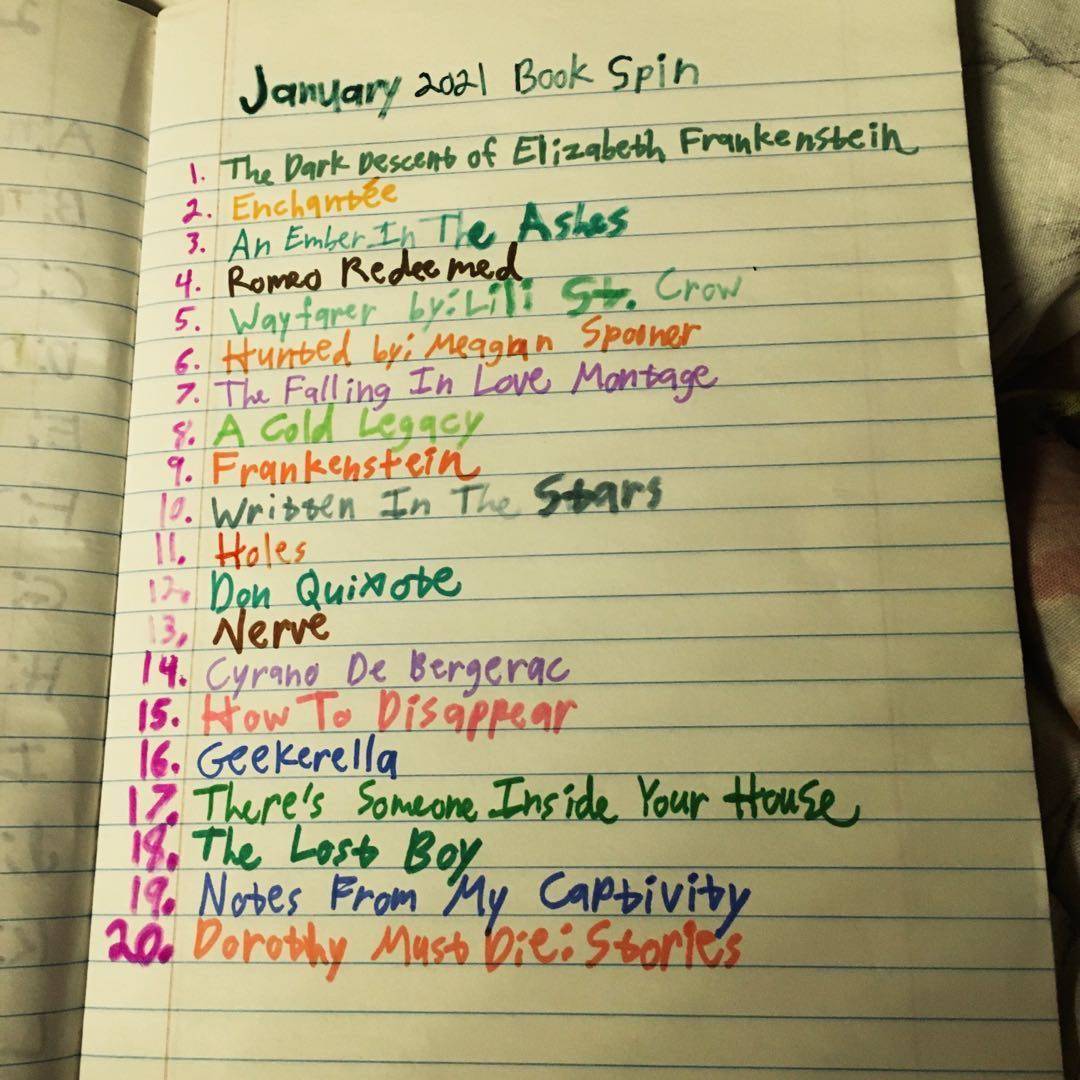 January 2021 Book Spin
1. The Dark Descent of Elizabeth Frankenstein
2. Enchantée
3. An Ember In The Ashes
4. Romeo Redeemed
5. Wayfarer by: Lili St. Crow
6. Hunted by: Meagan Spooner
7. The Falling In Love Montage
8. A Cold Legacy
9. Frankenstein
10. Written In The Stars
11. Holes
12. Don Quixote
13. Nerve
14. Cyrano De Bergerac
15. How To Disappear
16. Geekerella
17. There's Someone Inside Your House
18. The Lost Boy
19. Notes From My Captivity
20. Dorothy Must Die: Stories